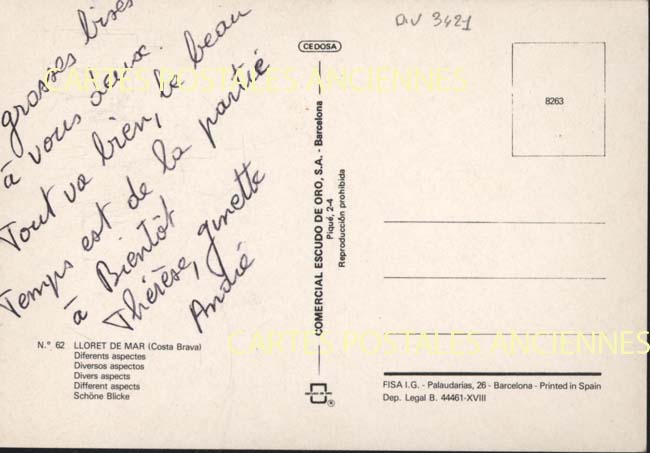 grosses bises
à vous deux.
Tout va bien, le beau
Temps est de la partie
à Bientôt
Thérèse, ginette
André
N.° 62 LLORET DE MAR (Costa Brava)
Diferents aspectes
Diversos aspectos
Divers aspects
Different aspects
Schöne Blicke
CEDOSA
COMERCIAL ESCUDO DE ORO, S.A. - Barcelona
Piqué, 2-4
Reproducción prohibida
DIV 3421
8263
FISA I.G. - Palaudarias, 26 - Barcelona - Printed in Spain
Dep. Legal B. 44461-XVIII
CARTES POSTALES ANCIENNES
CARTES POSTALES ANCIENNES